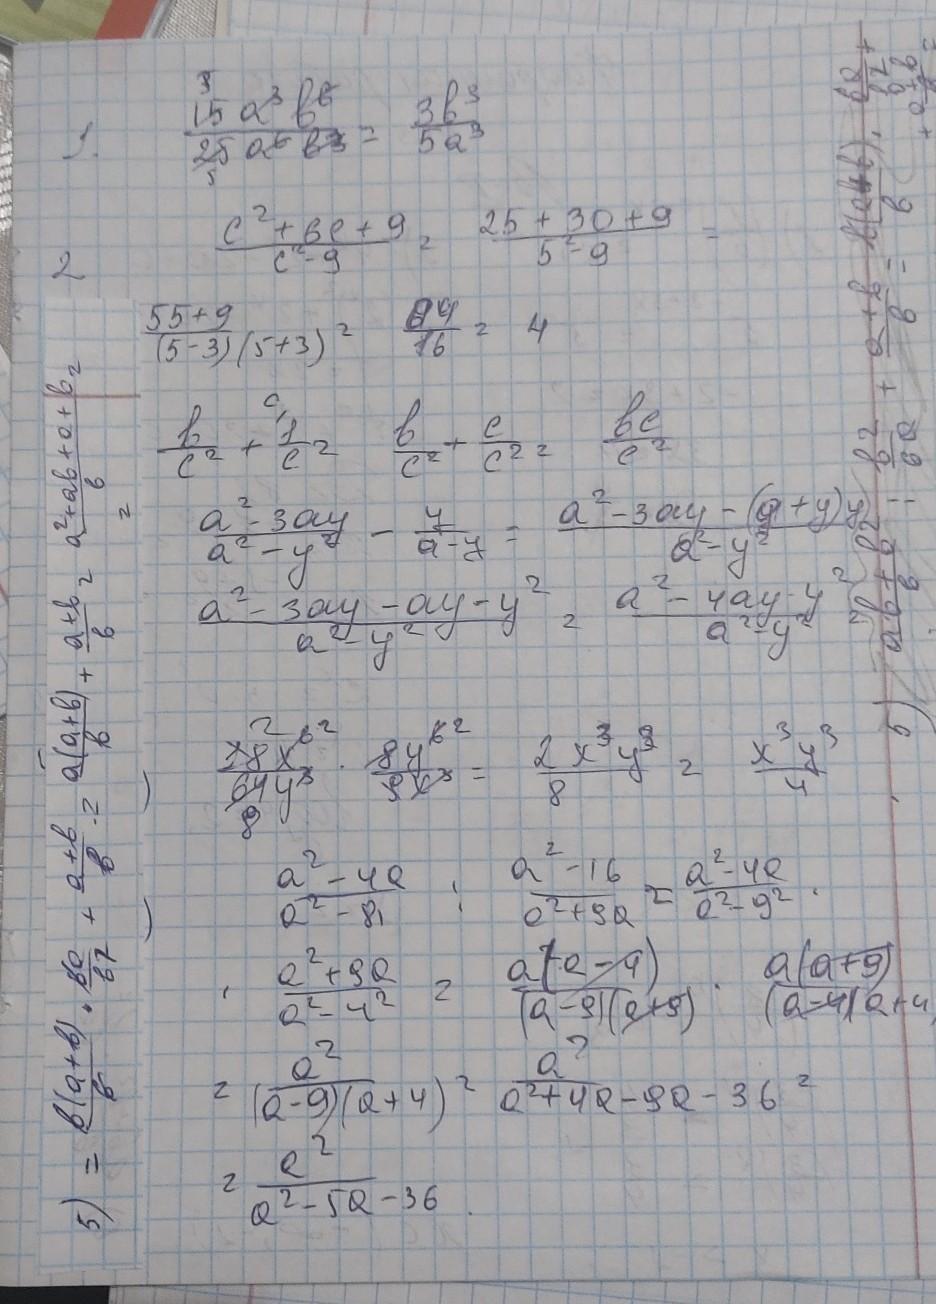 1. 15a³b⁶/25a⁶b³ = 3b³/5a³
2 c²+6c+9/c²-9 = 25+30+9/5²-9 =
55+9/(5-3)(5+3) = 64/16 = 4
b/c² + 1/c = b/c² + c/c² = bc/c²
a²-3ay/a²-y² - y/a-y = a²-3ay-(a+y)y/a²-y² =
a²-3ay-ay-y²/a²-y² = a²-4ay-y²/a²-y²
18x⁶/64y³ · 8y⁶/9x³ = 2x³y³/8 = x³y³/4
a²-4a/a²-81 : a²-16/a²+9a = a²-4a/a²-9² ·
· a²+9a/a²-4² = a(a-4)/(a-9)(a+9) · a(a+9)/(a-4)(a+4)
= a²/(a-9)(a+4) = a²/a²+4a-9a-36 =
= a²/a²-5a-36.
5) = b(a+b)/b · ba/b² + a+b/b = a(a+b)/b + a+b/b = a²+ab+a+b/b =
5)